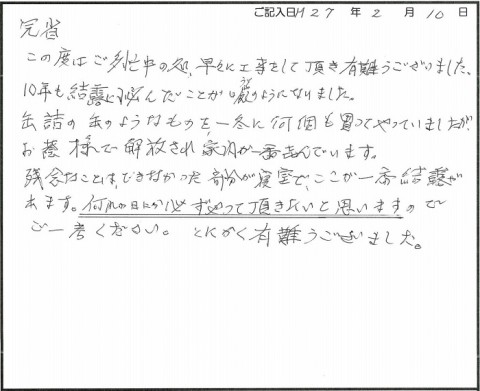 ご記入日 H27 年 2 月 10 日
冠省
この度はご多忙中の処、早々に工事をして頂き有難うございました。
10年も結露に悩んだことが嘘のようになりました。
うそ
缶詰の缶のようなものを一冬に何個も買ってやっていましたが
お蔭様で解放され家内が一番喜んでいます。
残念なことは、できなかった部分が寝室で、ここが一番結露が
出ます。何れの日にか必ずやって頂きたいと思いますので
ご一考ください。とにかく有難うございました。